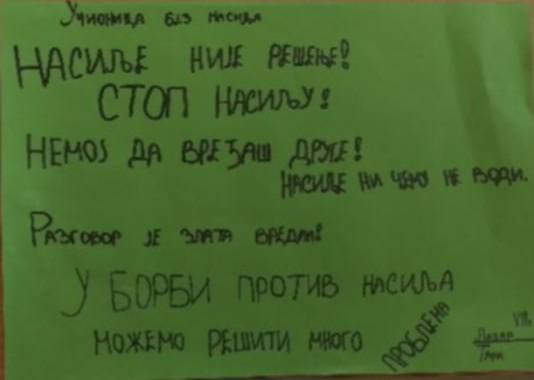 Учионица без насиља
НАСИЉЕ НИЈЕ РЕШЕЊЕ!
СТОП НАСИЉУ!
НЕМОЈ ДА ВРЕЂАШ ДРУГЕ!
НАСИЉЕ НИ ЧЕМУ НЕ ВОДИ.
РАЗГОВОР ЈЕ ЗЛАТА ВРЕДАН!
У БОРБИ ПРОТИВ НАСИЉА
МОЖЕМО РЕШИТИ МНОГО
ПРОБЛЕМА